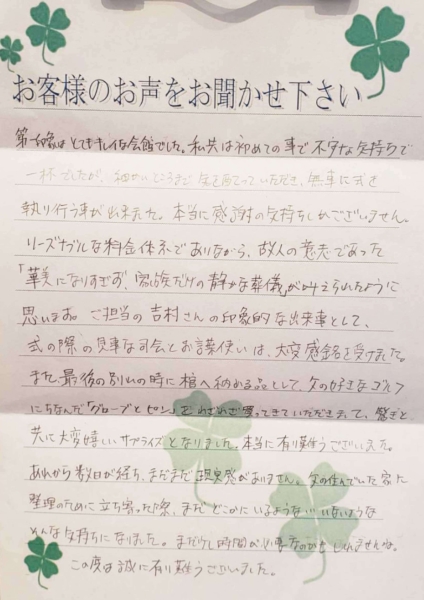 お客様のお声をお聞かせ下さい
第一印象はとてもキレイな会館でした。私共は初めての事で不安な気持ちで
一杯でしたが、細かいところまで気を配っていただき、無事に式を
執り行う事が出来ました。本当に感謝の気持ちしかございません。
リーズナブルな料金体系でありながら、故人の意志であった
「華美になりすぎず、家族だけの静かな葬儀」が叶えられたように
思います。ご担当の吉村さんの印象的な出来事として、
式の際の見事な司会とお言葉使いは、大変感銘を受けました。
また最後の別れの時に棺へ納める品として、父の好きなゴルフ
にちなんだ「グローブとピン」をわざわざ買ってきていただきまして、驚きと
共に大変嬉しいサプライズとなりました。本当に有り難うございました。
あれから数日が経ち、まだまだ現実感がありません。父の住んでいた家に
整理のために立ち寄った際、まだどこかにいるような…いないような
そんな気持ちになりました。まだ少し時間が必要なのかもしれませんね。
この度は誠に有り難うございました。